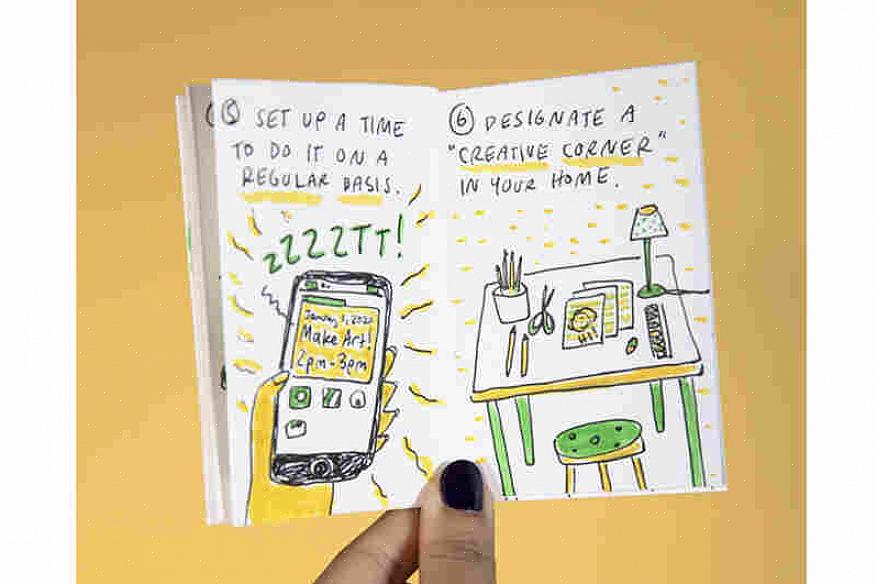 ⑤ SET UP A TIME
TO DO IT ON A
REGULAR BASIS.
ZZZZZTT!
January 1, 2022
Make Art!
2pm-3pm
⑥ DESIGNATE A
"CREATIVE CORNER"
IN YOUR HOME.